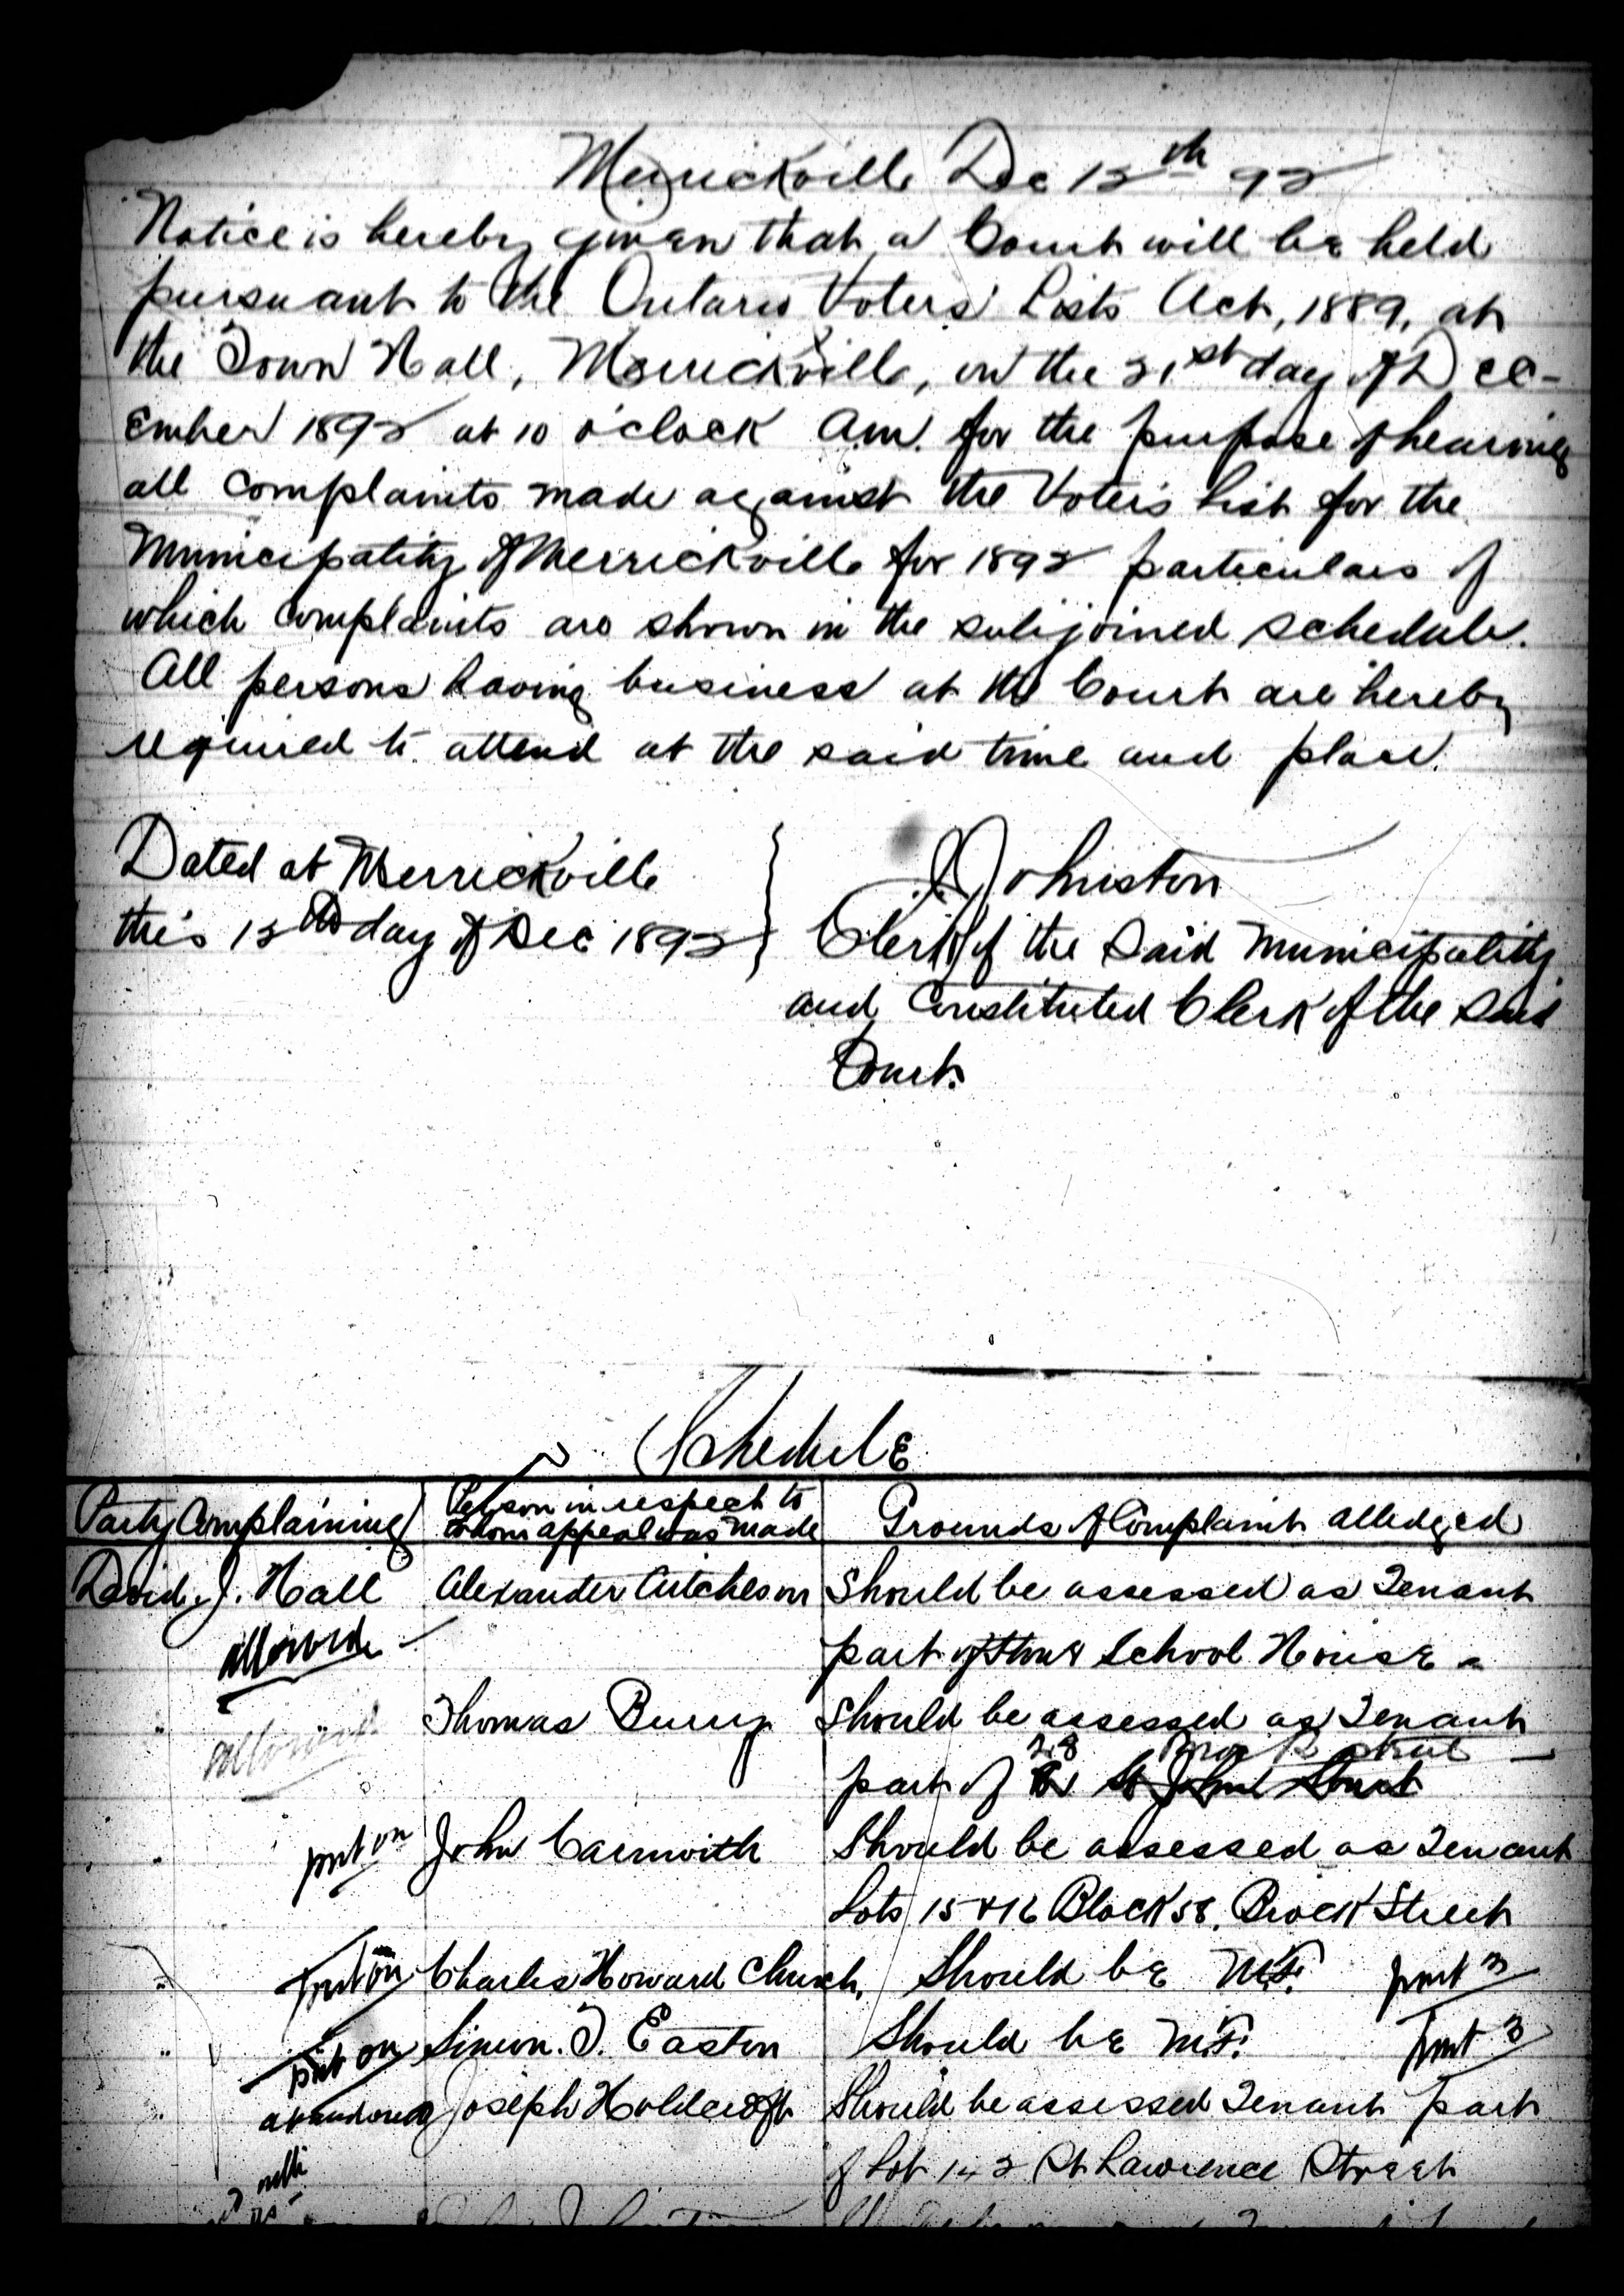 Merrickville Dec 12th 92
Notice is hereby given that a Court will be held
pursuant to the Ontario Voters' Lists Act, 1889, at
the Town Hall, Merrickville, on the 21st day of Dec-
ember 1892 at 10 o'clock a.m. for the purpose of hearing
all complaints made against the Voters List for the
Municipality of Merrickville for 1892 particulars of
which complaints are shown in the subjoined schedule.
All persons having business at the Court are hereby
required to attend at the said time and place.
Dated at Merrickville
this 12th day of Dec 1892
Johnston
Clerk of the Said Municipality
and Constituted Clerk of the Said
Court.
Schedule
Party Complaining Person in respect to whom appeal was made Grounds of Complaint alledged
David J. Hall Alexander Aitcheson Should be assessed as Tenant
allowed part of School House
" Thomas Berry Should be assessed as Tenant
allowed 28 Brock Street
part of St John Street
" put on John Carnwith Should be assessed as Tenant
Lots 15 & 16 Block 58, Brock Street
" put on Charles Howard Church, Should be M.F. part 3
" put on Simon. T. Easton Should be M.F. part 3
" abandoned Joseph Holdcroft Should be assessed Tenant part
of Lot 142 St Lawrence Street